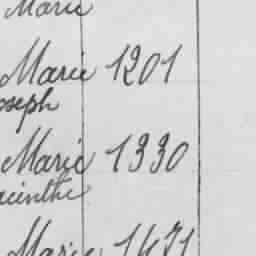 Marie
Marie 1201
oseph
Marie 1330
acinthe
Marie 1471